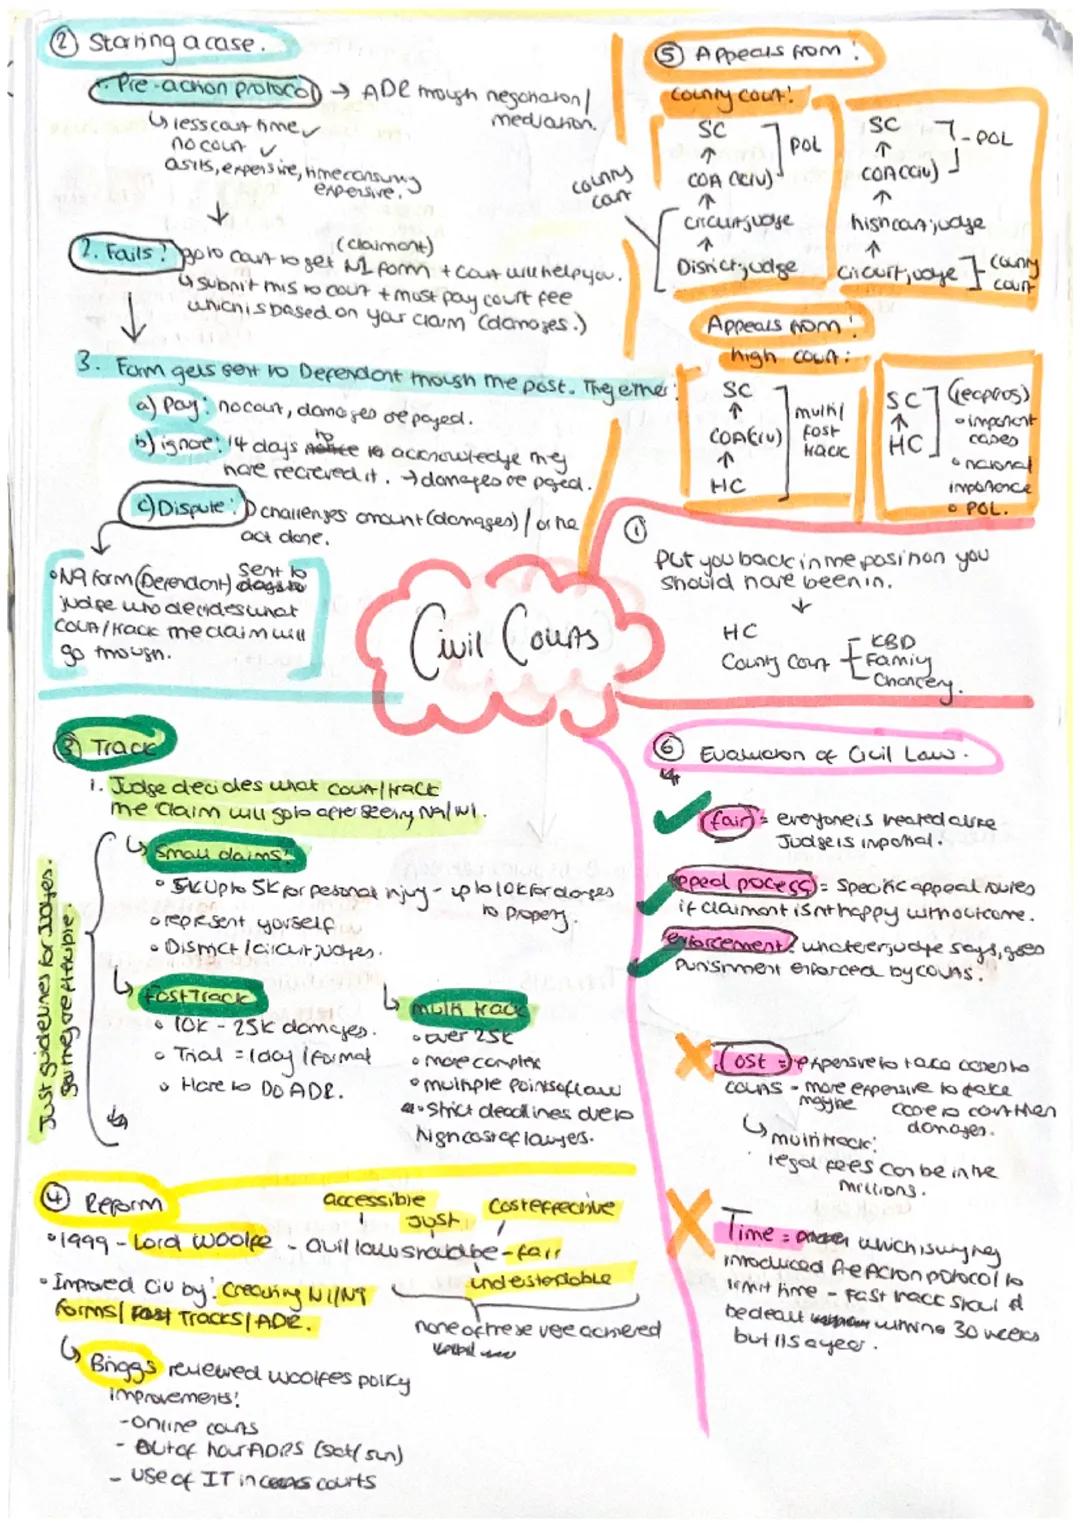 ② Starting a case.
1. Pre-action protocol → ADR through negotiation/
mediation.
↳ less court time ✓
no court ✓
as it's, expensive, time consuming
expensive.
↓
2. Fails? go to court to get N1 form + court will help you.
(claimant)
↳ submit this to court + must pay court fee
which is based on your claim (damages.)
↓
3. Form gets sent to Defendant through the post. They either:
a) Pay: no court, damages are payed.
b) ignore: 14 days to acknowledge they
have recieved it. → damages are payed.
c) Dispute: D challenges amount (damages) / or the
act done.
• N9 form (Defendant) sent to
judge who decides what
court/track the claim will
go through.
⑤ Appeals from:
county court:
SC
↑
COA (civ)
↑
circuit judge
↑
District judge
POL
county
court
SC
↑
COA (civ)
↑
high court judge
↑
circuit judge
- POL
county
court
Appeals from:
high court:
SC
↑
COA (civ)
↑
HC
multi/
fast
track
SC
↑
HC
(leapfrog)
• important
cases
• national
importance
• POL.
Civil Courts
①
Put you back in the position you
should have been in.
↓
HC
County Court
KBD
Family
Chancery.
③ Track
1. Judge decides what court/track
the claim will go to after seeing N9/N1.
Just guidelines for Judges.
↳ small claims:
• 5k up to 5k for personal injury - up to 10k for damages
to property.
• represent yourself
• District / circuit judges.
↳ fast track
• 10k - 25k damages.
• Trial = 1 day / formal
• Have to DO ADR.
↳ multi track
• over 25k
• more complex
• multiple points of law
• strict deadlines due to
high cost of lawyers.
④ Reform
accessible
Just
cost effective
• 1999 - Lord Woolfe - civil law should be - fair
understandable
• Improved civ by: creating N1/N9
forms/ fast Tracks/ ADR.
none of these were achieved
↳ Briggs reviewed woolfes policy
improvements:
- online courts
- out of hour ADRS (sat/sun)
- use of IT in courts
⑥ Evaluation of Civil Law.
fair = everyone is treated alike
Judge is impartial.
appeal process = specific appeal routes
if claimant isnt happy with outcome.
enforcement: whatever judge says, goes
punishment enforced by courts.
Cost = expensive to take cases to
courts - more expensive to take
maybe case to court then
damages.
↳ multi track:
legal fees can be in the
millions.
Time = which is why they
introduced Pre Action protocol to
limit time - fast track should
be dealt within 30 weeks
but its a year.